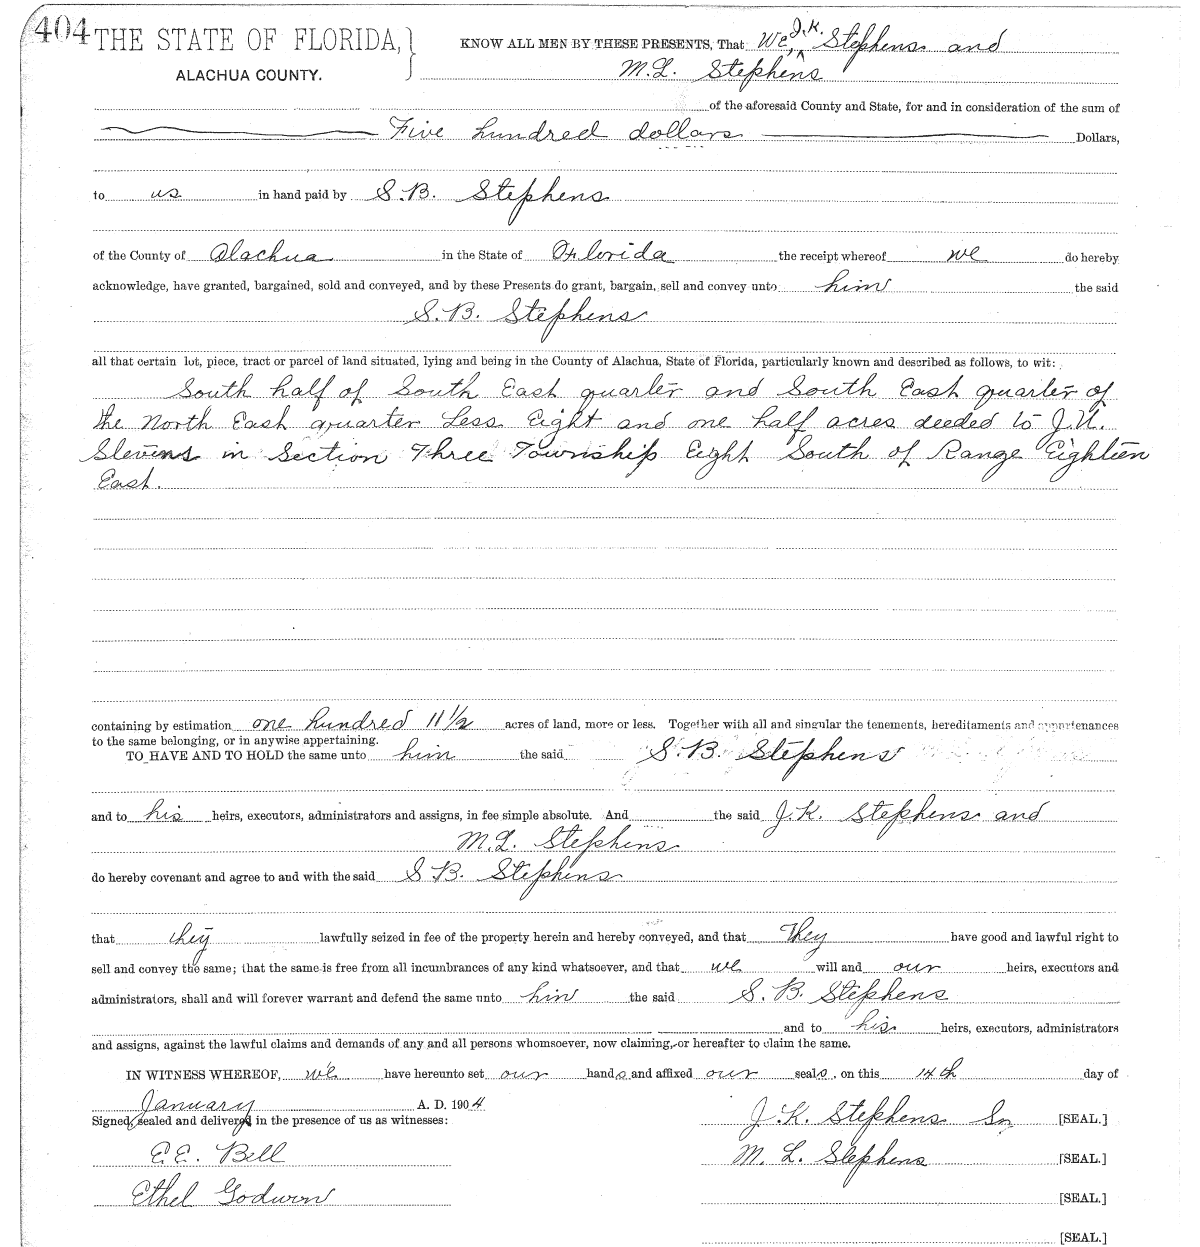 404 THE STATE OF FLORIDA,
ALACHUA COUNTY.
KNOW ALL MEN BY THESE PRESENTS, That We, J.K. Stephens and
M.L. Stephens
of the aforesaid County and State, for and in consideration of the sum of
Five hundred dollars Dollars,
to us in hand paid by S.B. Stephens
of the County of Alachua in the State of Florida the receipt whereof we do hereby
acknowledge, have granted, bargained, sold and conveyed, and by these Presents do grant, bargain, sell and convey unto him the said
S.B. Stephens
all that certain lot, piece, tract or parcel of land situated, lying and being in the County of Alachua, State of Florida, particularly known and described as follows, to wit:
South half of South East quarter and South East quarter of
the North East quarter Less Eight and one half acres deeded to J.
Stevens in Section Three Township Eight South of Range Eighteen
East.
containing by estimation one hundred 11 1/2 acres of land, more or less. Together with all and singular the tenements, hereditaments and appurtenances
to the same belonging, or in anywise appertaining.
TO HAVE AND TO HOLD the same unto him the said S.B. Stephens
and to his heirs, executors, administrators and assigns, in fee simple absolute. And the said J.K. Stephens and
M.L. Stephens
do hereby covenant and agree to and with the said S B. Stephens
that they lawfully seized in fee of the property herein and hereby conveyed, and that They have good and lawful right to
sell and convey the same; that the same is free from all incumbrances of any kind whatsoever, and that we will and our heirs, executors and
administrators, shall and will forever warrant and defend the same unto him the said S. B. Stephens
and to his heirs, executors, administrators
and assigns, against the lawful claims and demands of any and all persons whomsoever, now claiming, or hereafter to claim the same.
IN WITNESS WHEREOF, we have hereunto set our hands and affixed our seals, on this 14th day of
January A. D. 1904
Signed, sealed and delivered in the presence of us as witnesses:
J.K. Stephens Sr [SEAL.]
E.E. Bell
M. L. Stephens [SEAL.]
Ethel Godwin
[SEAL.]
[SEAL.]